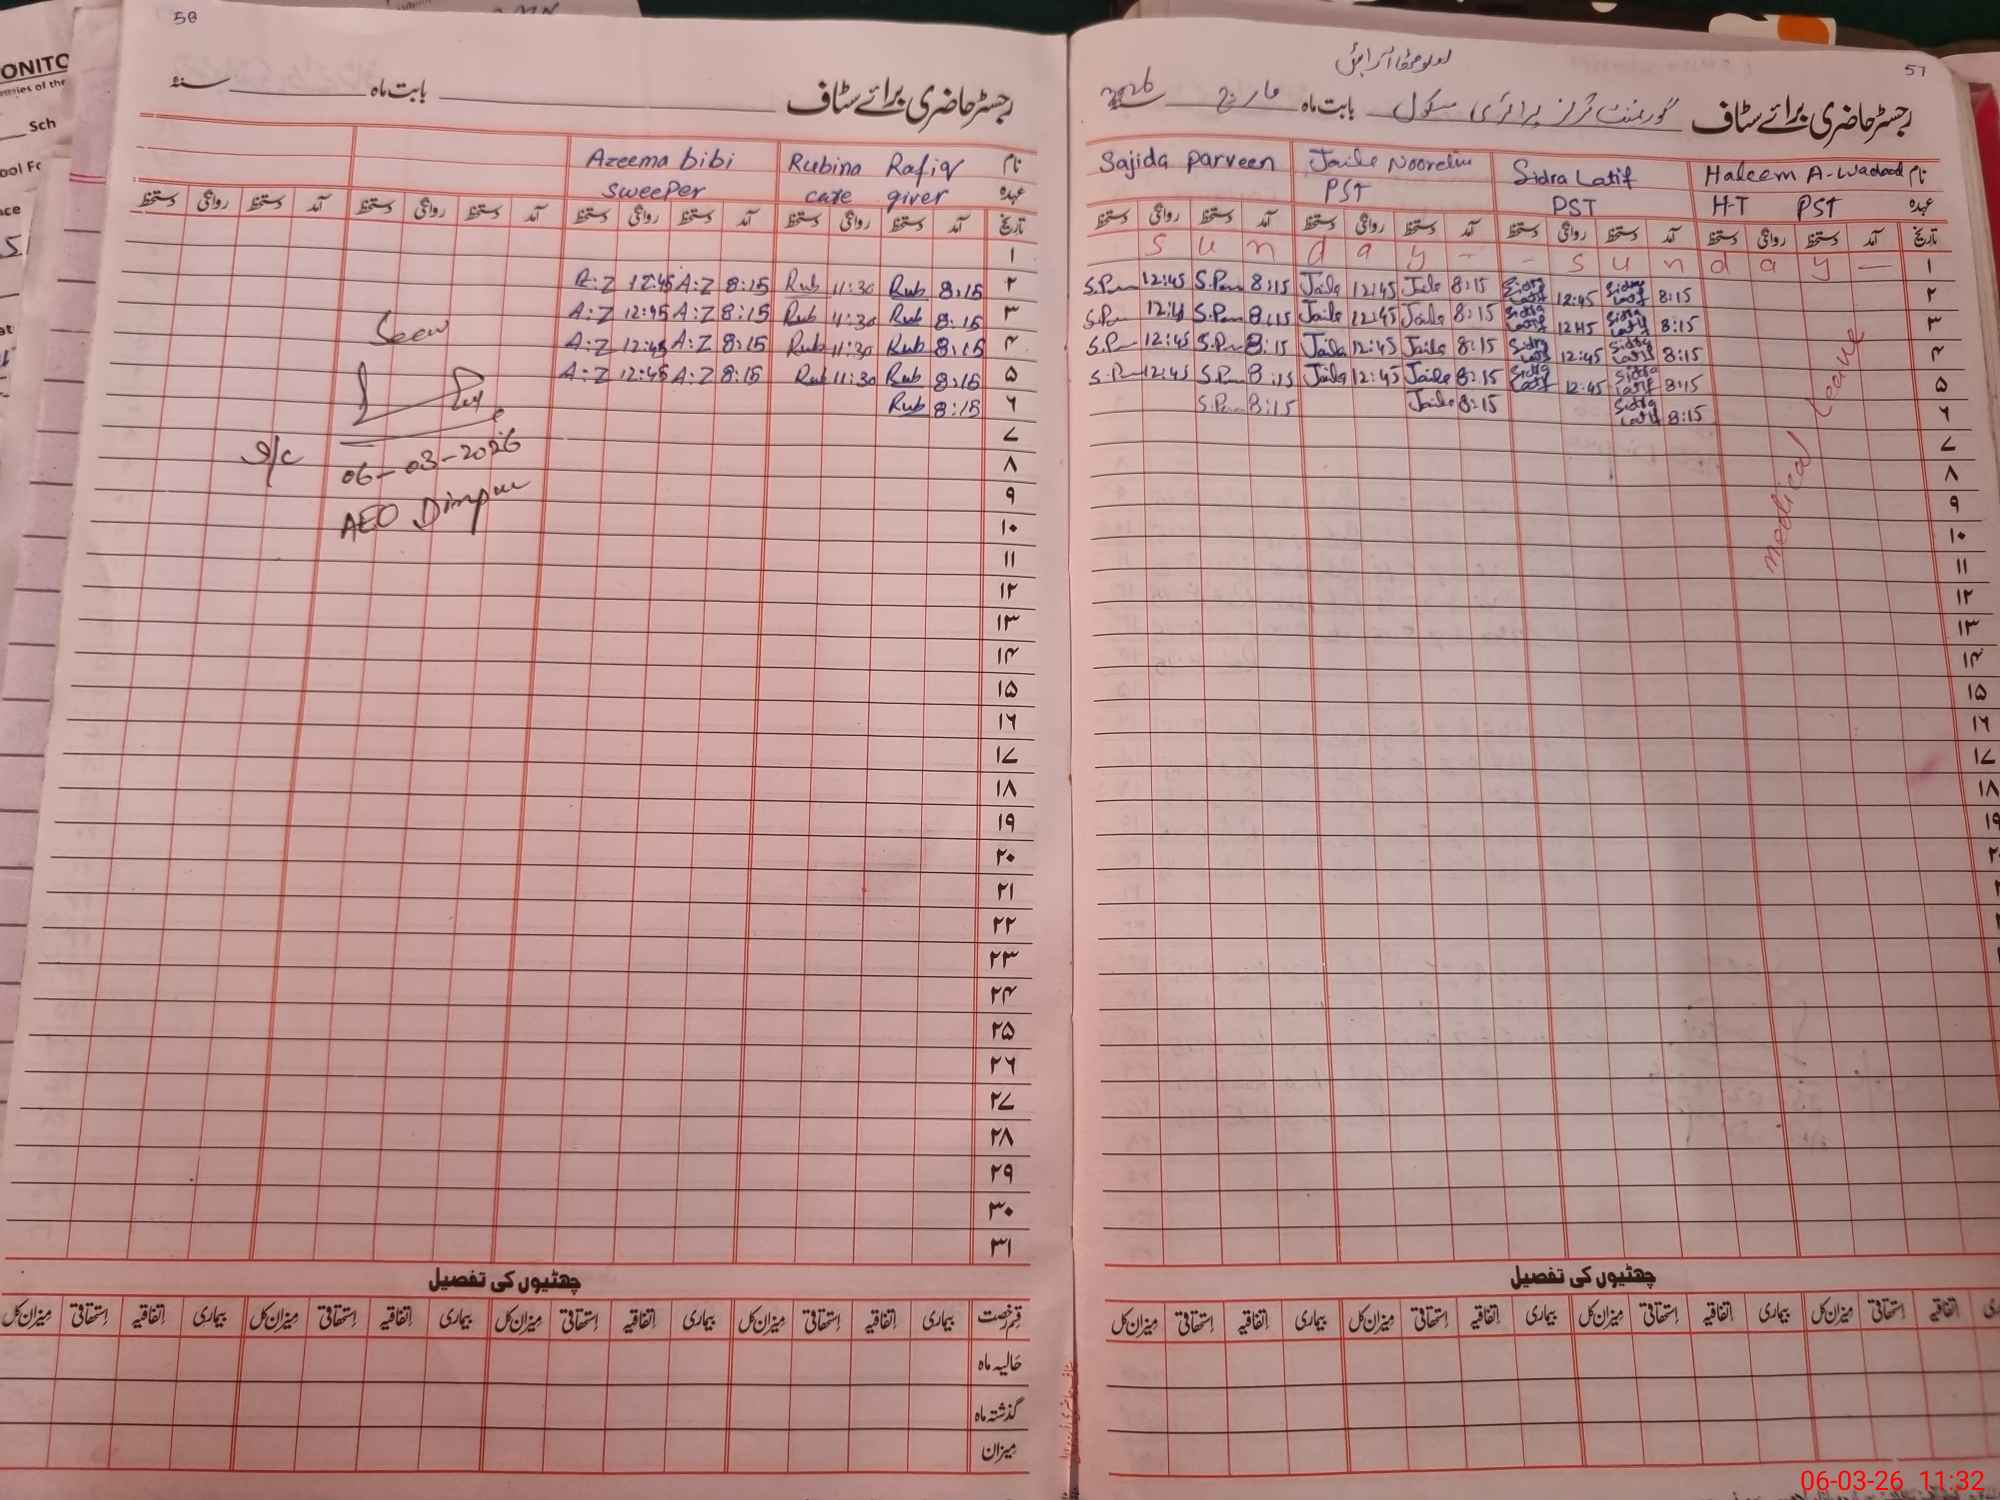 56
رجسٹر حاضری برائے سٹاف بابت ماہ سنہ
نام Rubina Rafiq Azeema bibi
عہدہ care giver sweeper
تاریخ آمد دستخط روانگی دستخط آمد دستخط روانگی دستخط آمد دستخط روانگی دستخط آمد دستخط روانگی دستخط
۱
۲ 8:15 Rub 11:30 Rub 8:15 A:Z 12:45 A:Z
۳ 8:15 Rub 11:30 Rub 8:15 A:Z 12:45 A:Z
۴ 8:15 Rub 11:30 Rub 8:15 A:Z 12:45 A:Z
۵ 8:15 Rub 11:30 Rub 8:15 A:Z 12:45 A:Z
۶ 8:15 Rub
۷
۸
۹
۱۰
۱۱
۱۲
۱۳
۱۴
۱۵
۱۶
۱۷
۱۸
۱۹
۲۰
۲۱
۲۲
۲۳
۲۴
۲۵
۲۶
۲۷
۲۸
۲۹
۳۰
۳۱
Seen
06-03-2026
AEO
چھٹیوں کی تفصیل
قسم رخصت بیماری اتفاقیہ استحقاقی میزان کل بیماری اتفاقیہ استحقاقی میزان کل بیماری اتفاقیہ استحقاقی میزان کل بیماری اتفاقیہ استحقاقی میزان کل
حالیہ ماہ
گذشتہ ماہ
میزان
57
رجسٹر حاضری برائے سٹاف گورنمنٹ گرلز پرائمری سکول بابت ماہ مارچ 2026
نام Haleem A-Wadood Sidra Latif Jaila Sajida Parveen
عہدہ H-T PST PST PST
تاریخ آمد دستخط روانگی دستخط آمد دستخط روانگی دستخط آمد دستخط روانگی دستخط آمد دستخط روانگی دستخط
۱ Sunday Sunday
۲ 8:15 Sidra Latif 12:45 Sidra Latif 8:15 Jaila 12:45 Jaila 8:15 12:45
۳ 8:15 Sidra Latif 12:45 Sidra Latif 8:15 Jaila 12:45 Jaila 8:15
۴ 8:15 Sidra Latif 12:45 Sidra Latif 8:15 Jaila 12:45 Jaila 8:15 12:45
۵ 8:15 Sidra Latif 12:45 Sidra Latif 8:15 Jaila 12:45 Jaila 8:15 12:45
۶ 8:15 Sidra Latif 8:15 Jaila 8:15
۷
۸
۹
۱۰
۱۱
۱۲
۱۳
۱۴
۱۵
۱۶
۱۷
۱۸
medical leave
چھٹیوں کی تفصیل
اتفاقیہ استحقاقی میزان کل بیماری اتفاقیہ استحقاقی میزان کل بیماری اتفاقیہ استحقاقی میزان کل بیماری اتفاقیہ استحقاقی میزان کل
06-03-26 11:32